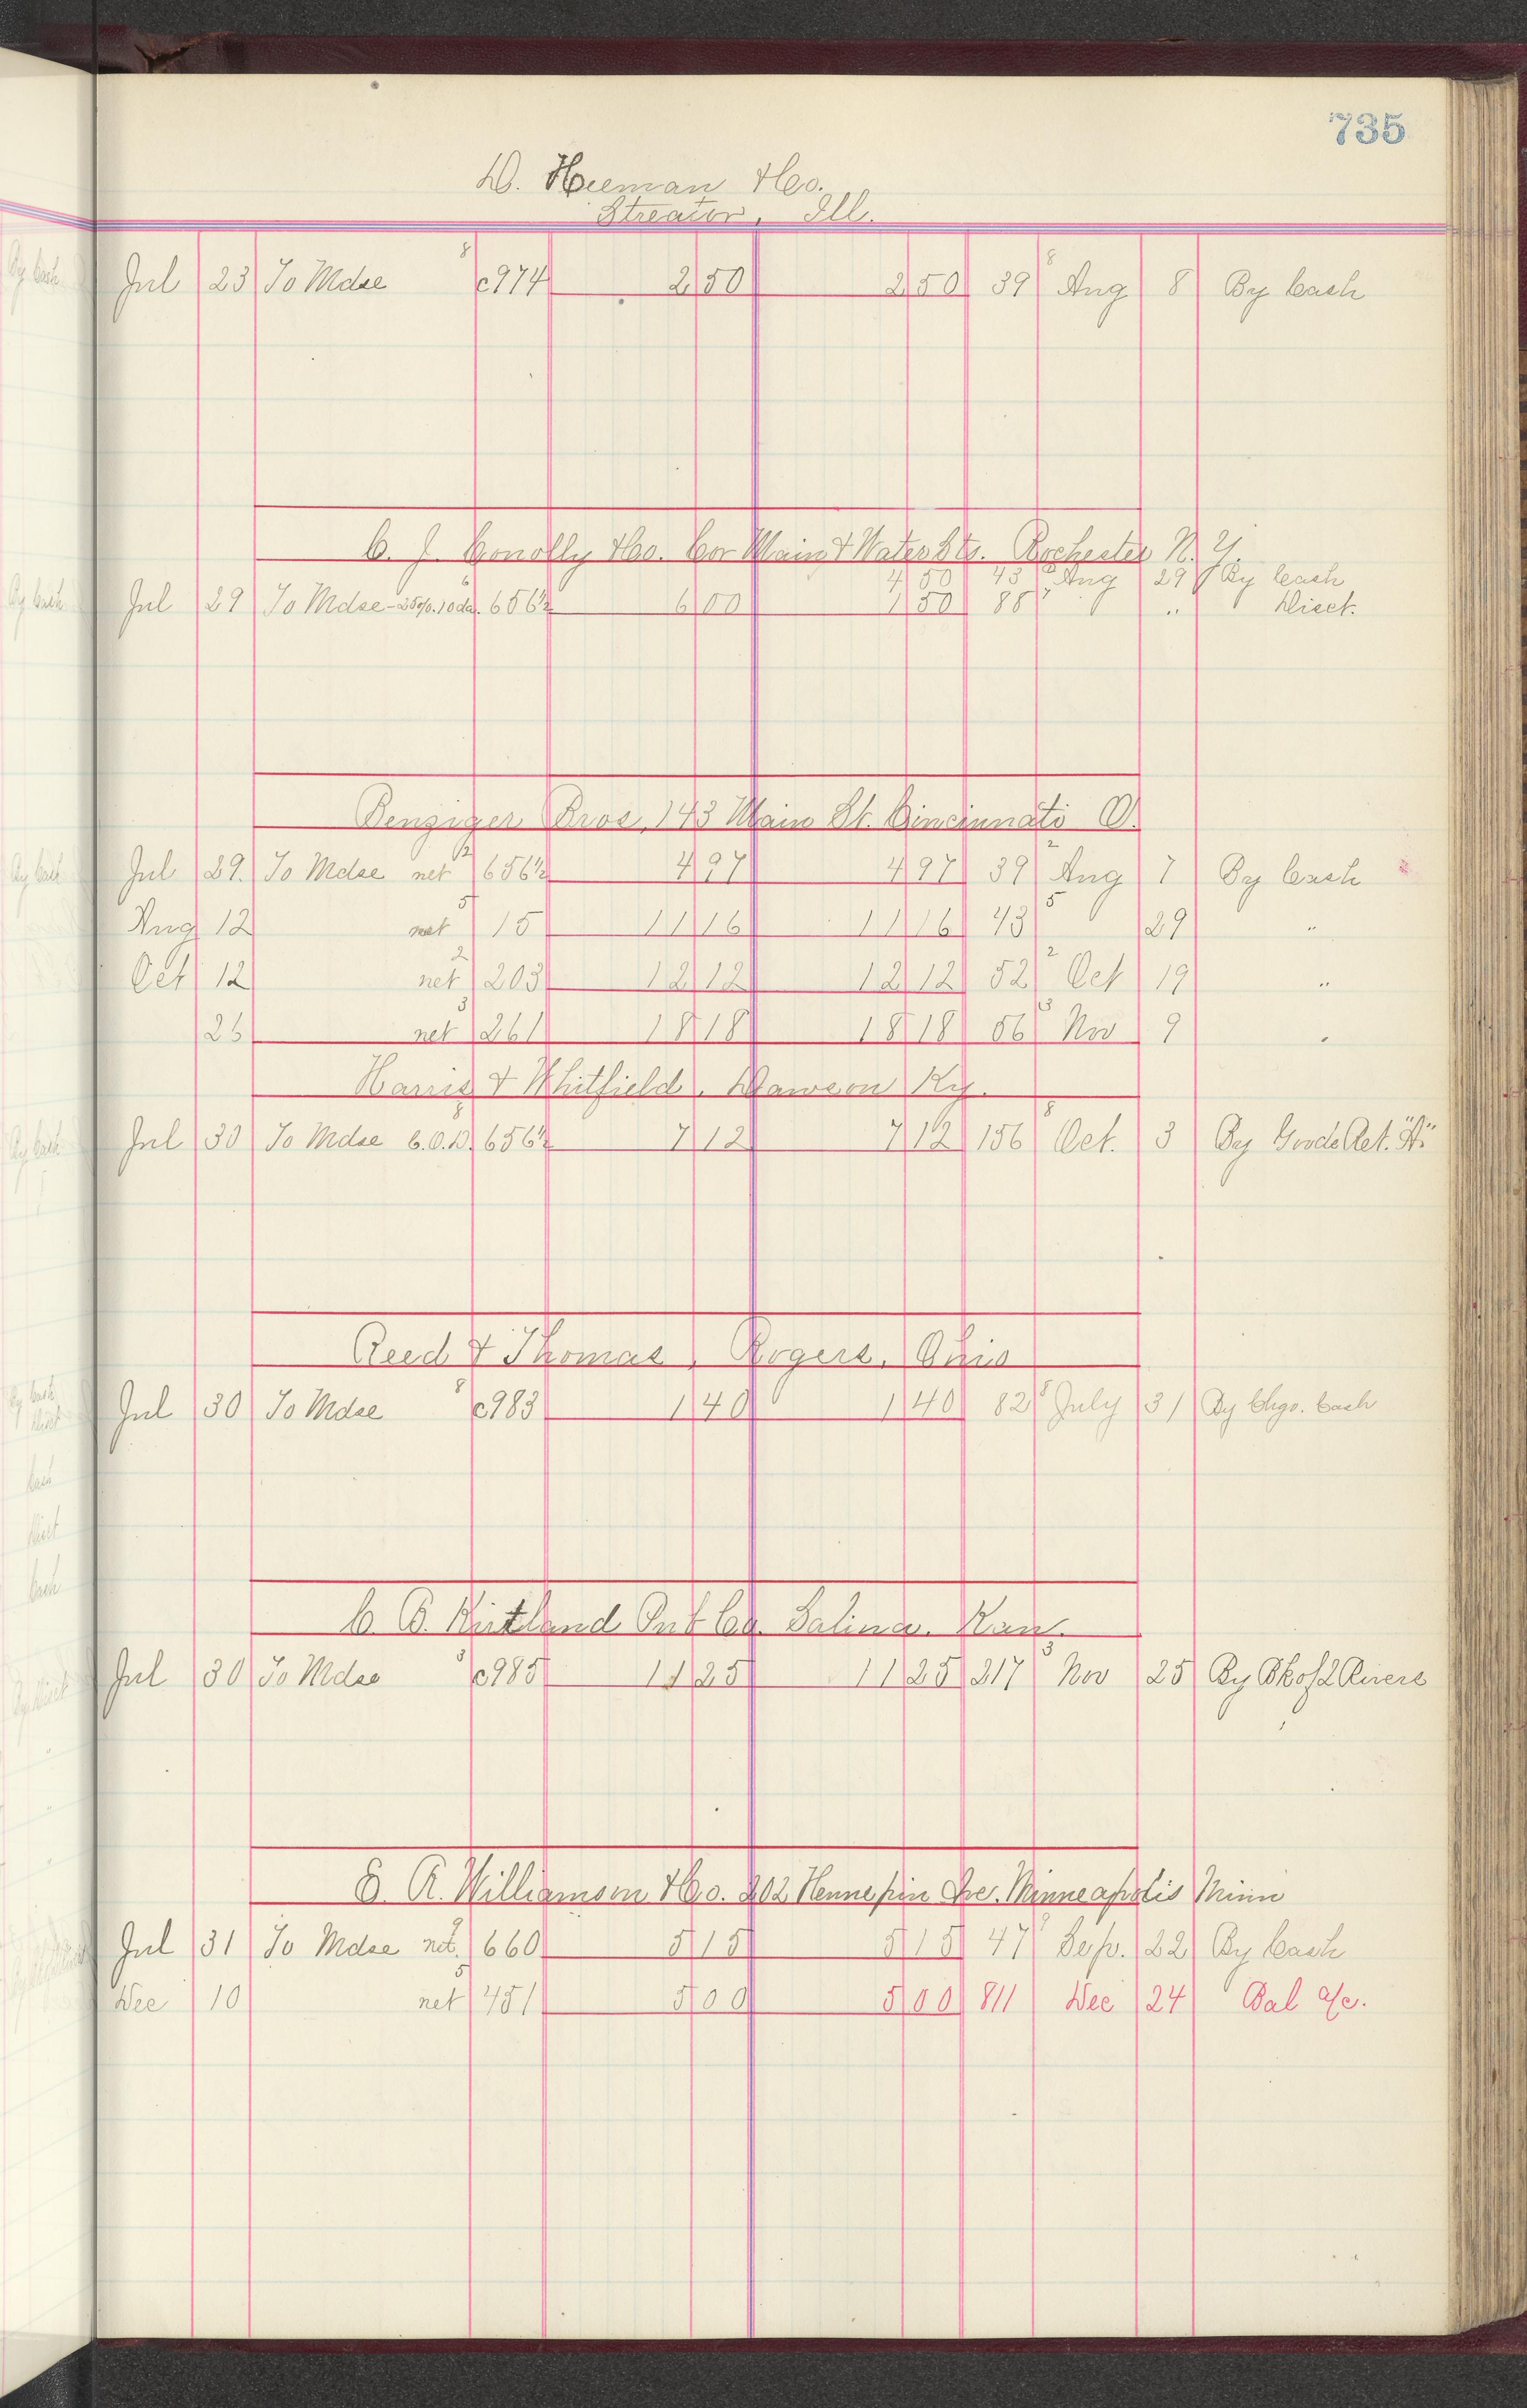 735
D. Heeman & Co.
Streator, Ill.
Jul 23 To Mdse 8 c974 2 50 2 50 39 8 Aug 8 By Cash
C. J. Conolly & Co. Cor Main & Water Sts. Rochester N. Y.
4 50 43 Aug 29 By Cash
Jul 29 To Mdse - 25%. 10 da. 6 656½ 6 00 1 50 88 7 " Disct.
Benziger Bros, 143 Main St. Cincinnati O.
Jul 29. To Mdse net 12 656½ 4 97 4 97 39 2 Aug 7 By Cash
Aug 12 net 5 15 11 16 11 16 43 5 29 "
Oct 12 net 2 203 12 12 12 12 52 2 Oct 19 "
26 net 3 261 18 18 18 18 56 3 Nov 9 "
Harris & Whitfield, Dawson Ky.
Jul 30 To Mdse C.O.D. 8 656½ 7 12 7 12 156 8 Oct. 3 By Goods Ret. "A"
Reed & Thomas, Rogers, Ohio
Jul 30 To Mdse 8 c983 1 40 1 40 82 8 July 31 By Chgo. Cash
C. B. Kirtland Pub Co. Salina. Kan.
Jul 30 To Mdse 3 c985 11 25 11 25 217 3 Nov 25 By Bk of 2 Rivers
E. R. Williamson & Co. 202 Hennepin Ave. Minneapolis Minn
Jul 31 To Mdse net. 9 660 5 15 5 15 47 9 Sep. 22 By Cash
Dec 10 net 5 451 5 00 5 00 811 Dec 24 Bal a/c.